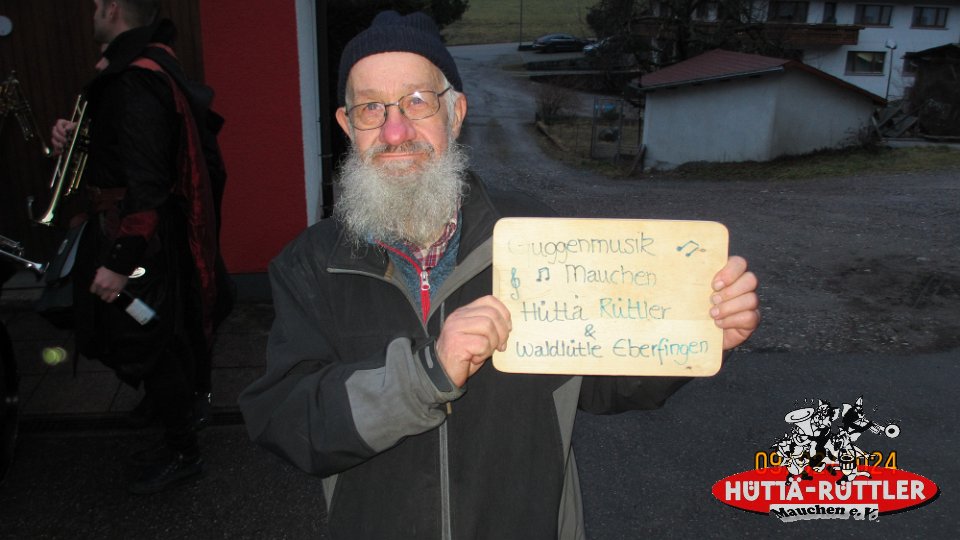 Guggenmusik
Mauchen
Hüttä Rüttler
&
Waldlütle Eberfingen
HÜTTÄ-RÜTTLER
Mauchen e.V.